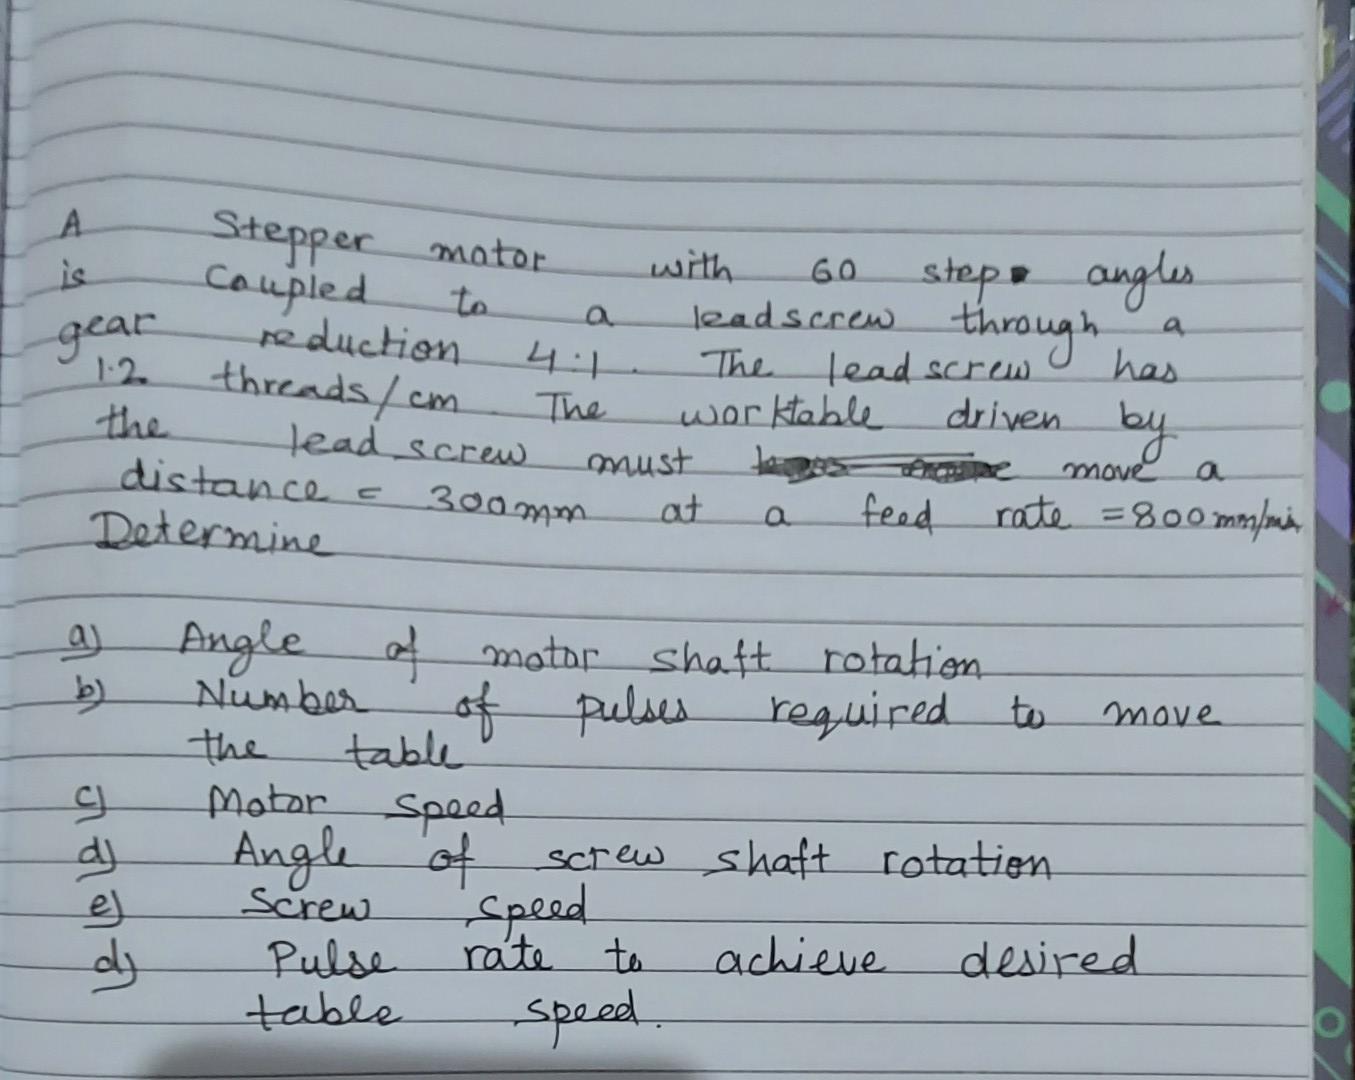 A Stepper motor with 60 step angles
is Coupled to a leadscrew through a
gear reduction 4:1. The leadscrew has
1.2 threads/cm. The worktable driven by
the lead screw must move a
distance = 300mm at a feed rate = 800 mm/min
Determine
a) Angle of motor shaft rotation
b) Number of pulses required to move
the table
c) Motor speed
d) Angle of screw shaft rotation
e) Screw speed
d) Pulse rate to achieve desired
table speed.